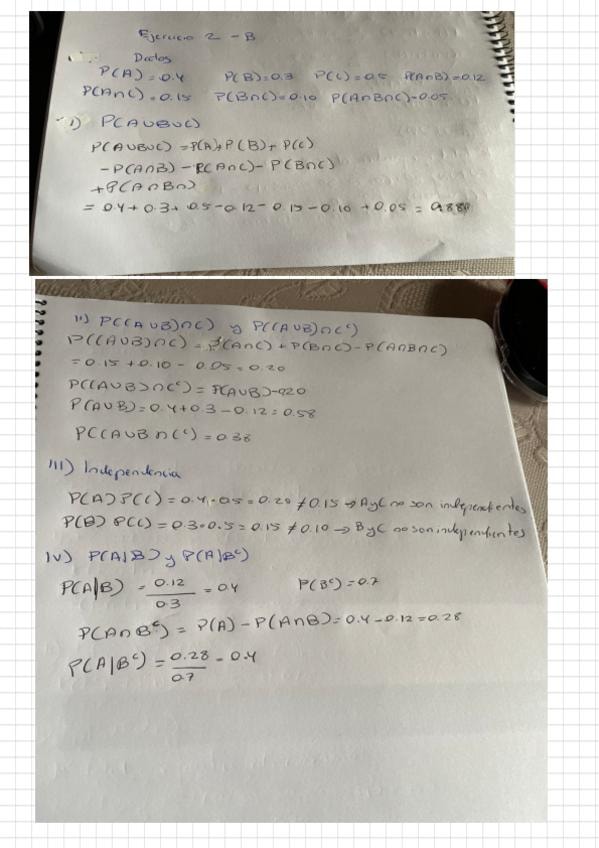 Ejercicio 2 - B
Datos
P(A) = 0.4 P(B) = 0.3 P(C) = 0.5 P(A∩B) = 0.12
P(A∩C) = 0.15 P(B∩C) = 0.10 P(A∩B∩C) = 0.05
I) P(A∪B∪C)
P(A∪B∪C) = P(A) + P(B) + P(C)
- P(A∩B) - P(A∩C) - P(B∩C)
+ P(A∩B∩)
= 0.4 + 0.3 + 0.5 - 0.12 - 0.15 - 0.10 + 0.05 =
II) P((A∪B)∩C) y P((A∪B)∩Cᶜ)
P((A∪B)∩C) = P(A∩C) + P(B∩C) - P(A∩B∩C)
= 0.15 + 0.10 - 0.05 = 0.20
P((A∪B)∩Cᶜ) = P(A∪B) - 020
P(A∪B) = 0.4 + 0.3 - 0.12 = 0.58
P((A∪B∩Cᶜ) = 0.38
III) Independencia
P(A) P(C) = 0.4 · 0.5 = 0.20 ≠ 0.15 → A y C no son independientes
P(B) P(C) = 0.3 · 0.5 = 0.15 ≠ 0.10 → B y C no son independientes
IV) P(A|B) y P(A|Bᶜ)
P(A|B) = 0.12/0.3 = 0.4 P(Bᶜ) = 0.7
P(A∩Bᶜ) = P(A) - P(A∩B) = 0.4 - 0.12 = 0.28
P(A|Bᶜ) = 0.28/0.7 = 0.4